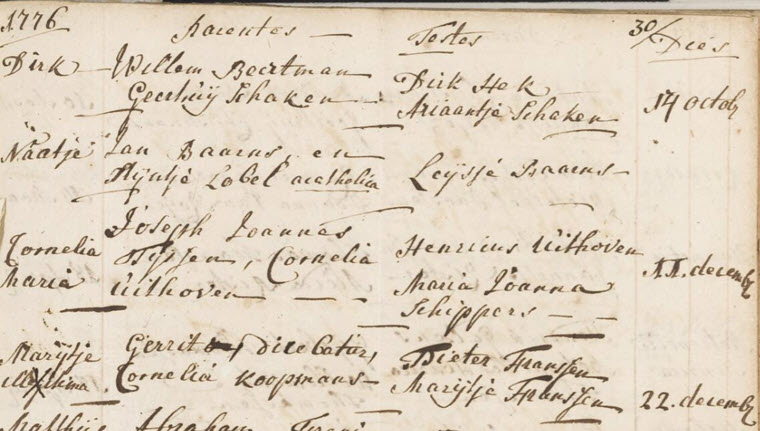 1776 Parentes — Testes 30/ Dies
Dirk — Willem Beertman Dirk Hek
Geertruij Schaken — Ariaantje Schaken 14 octob
Naatje Jan Baarns, en
Sijntje Lobel acatholica Leijsje Baarns —
Joseph Joannes
Cornelia Tijssen, Cornelia Henricus Uithoven 11. decemb
Maria Uithoven — — Maria Joanna
Schippers — —
Marijtje Gerrit dicebatur, Pieter Franssen
Cornelia Koopmans — Marijtje Franssen 22. decemb
Matthijs Abraham